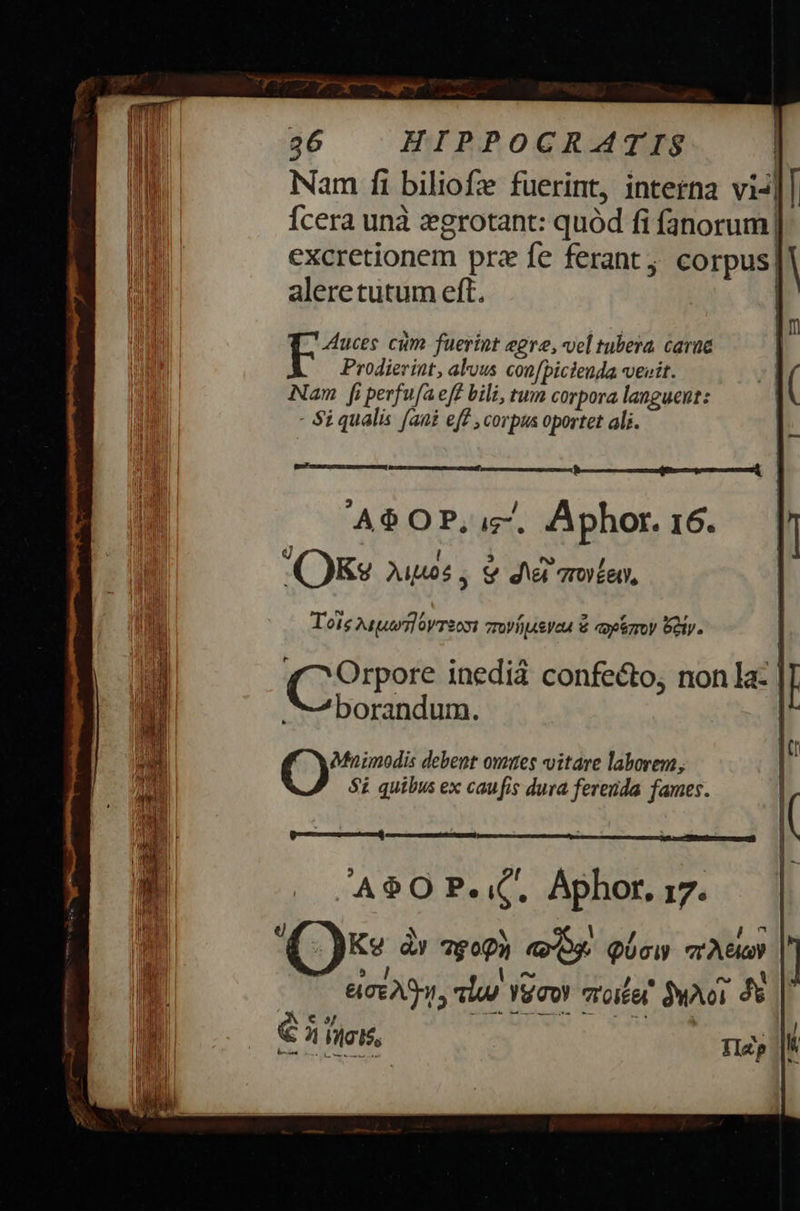 36 HIPPOCRATIS
Nam ſi bilioſæ fuerint, interna vi-
ſcera unà ægrotant: quòd ſi ſanorum
excretionem præ ſe ferant, corpus
alere tutum eſt.
FAuces cùm fuerint ægræ, vel tubera carne
Prodierint, alvus conſpicienda venit.
Nam ſi perfuſa eſt bili, tum corpora languent:
Si qualis ſani eſt, corpus oportet ali.
ἈΦΟΡ. ιϛʹ. Aphor. 16.
Ὅκȣ λιμὸς, ȣ̓ δεῖ πονέειν,
Τοῖς λιμώττοντεσσι πονήμεναι ȣ̓ πρέπον ἐϛίν.
COrpore inediâ confecto, non la-
borandum.
OMnimodis debent omnes vitare laborem,
Si quibus ex cauſis dura ferenda fames.
ἈΦΟΡ. ιζʹ. Aphor. 17.
Ὅκȣ ἂν τροφὴ παρὰ φύσιν πλείων
εἰσέλθη, τὴν νȣ͂σον ποιέει· δηλοῖ δὲ
ἡ ἴησις.
Παρ